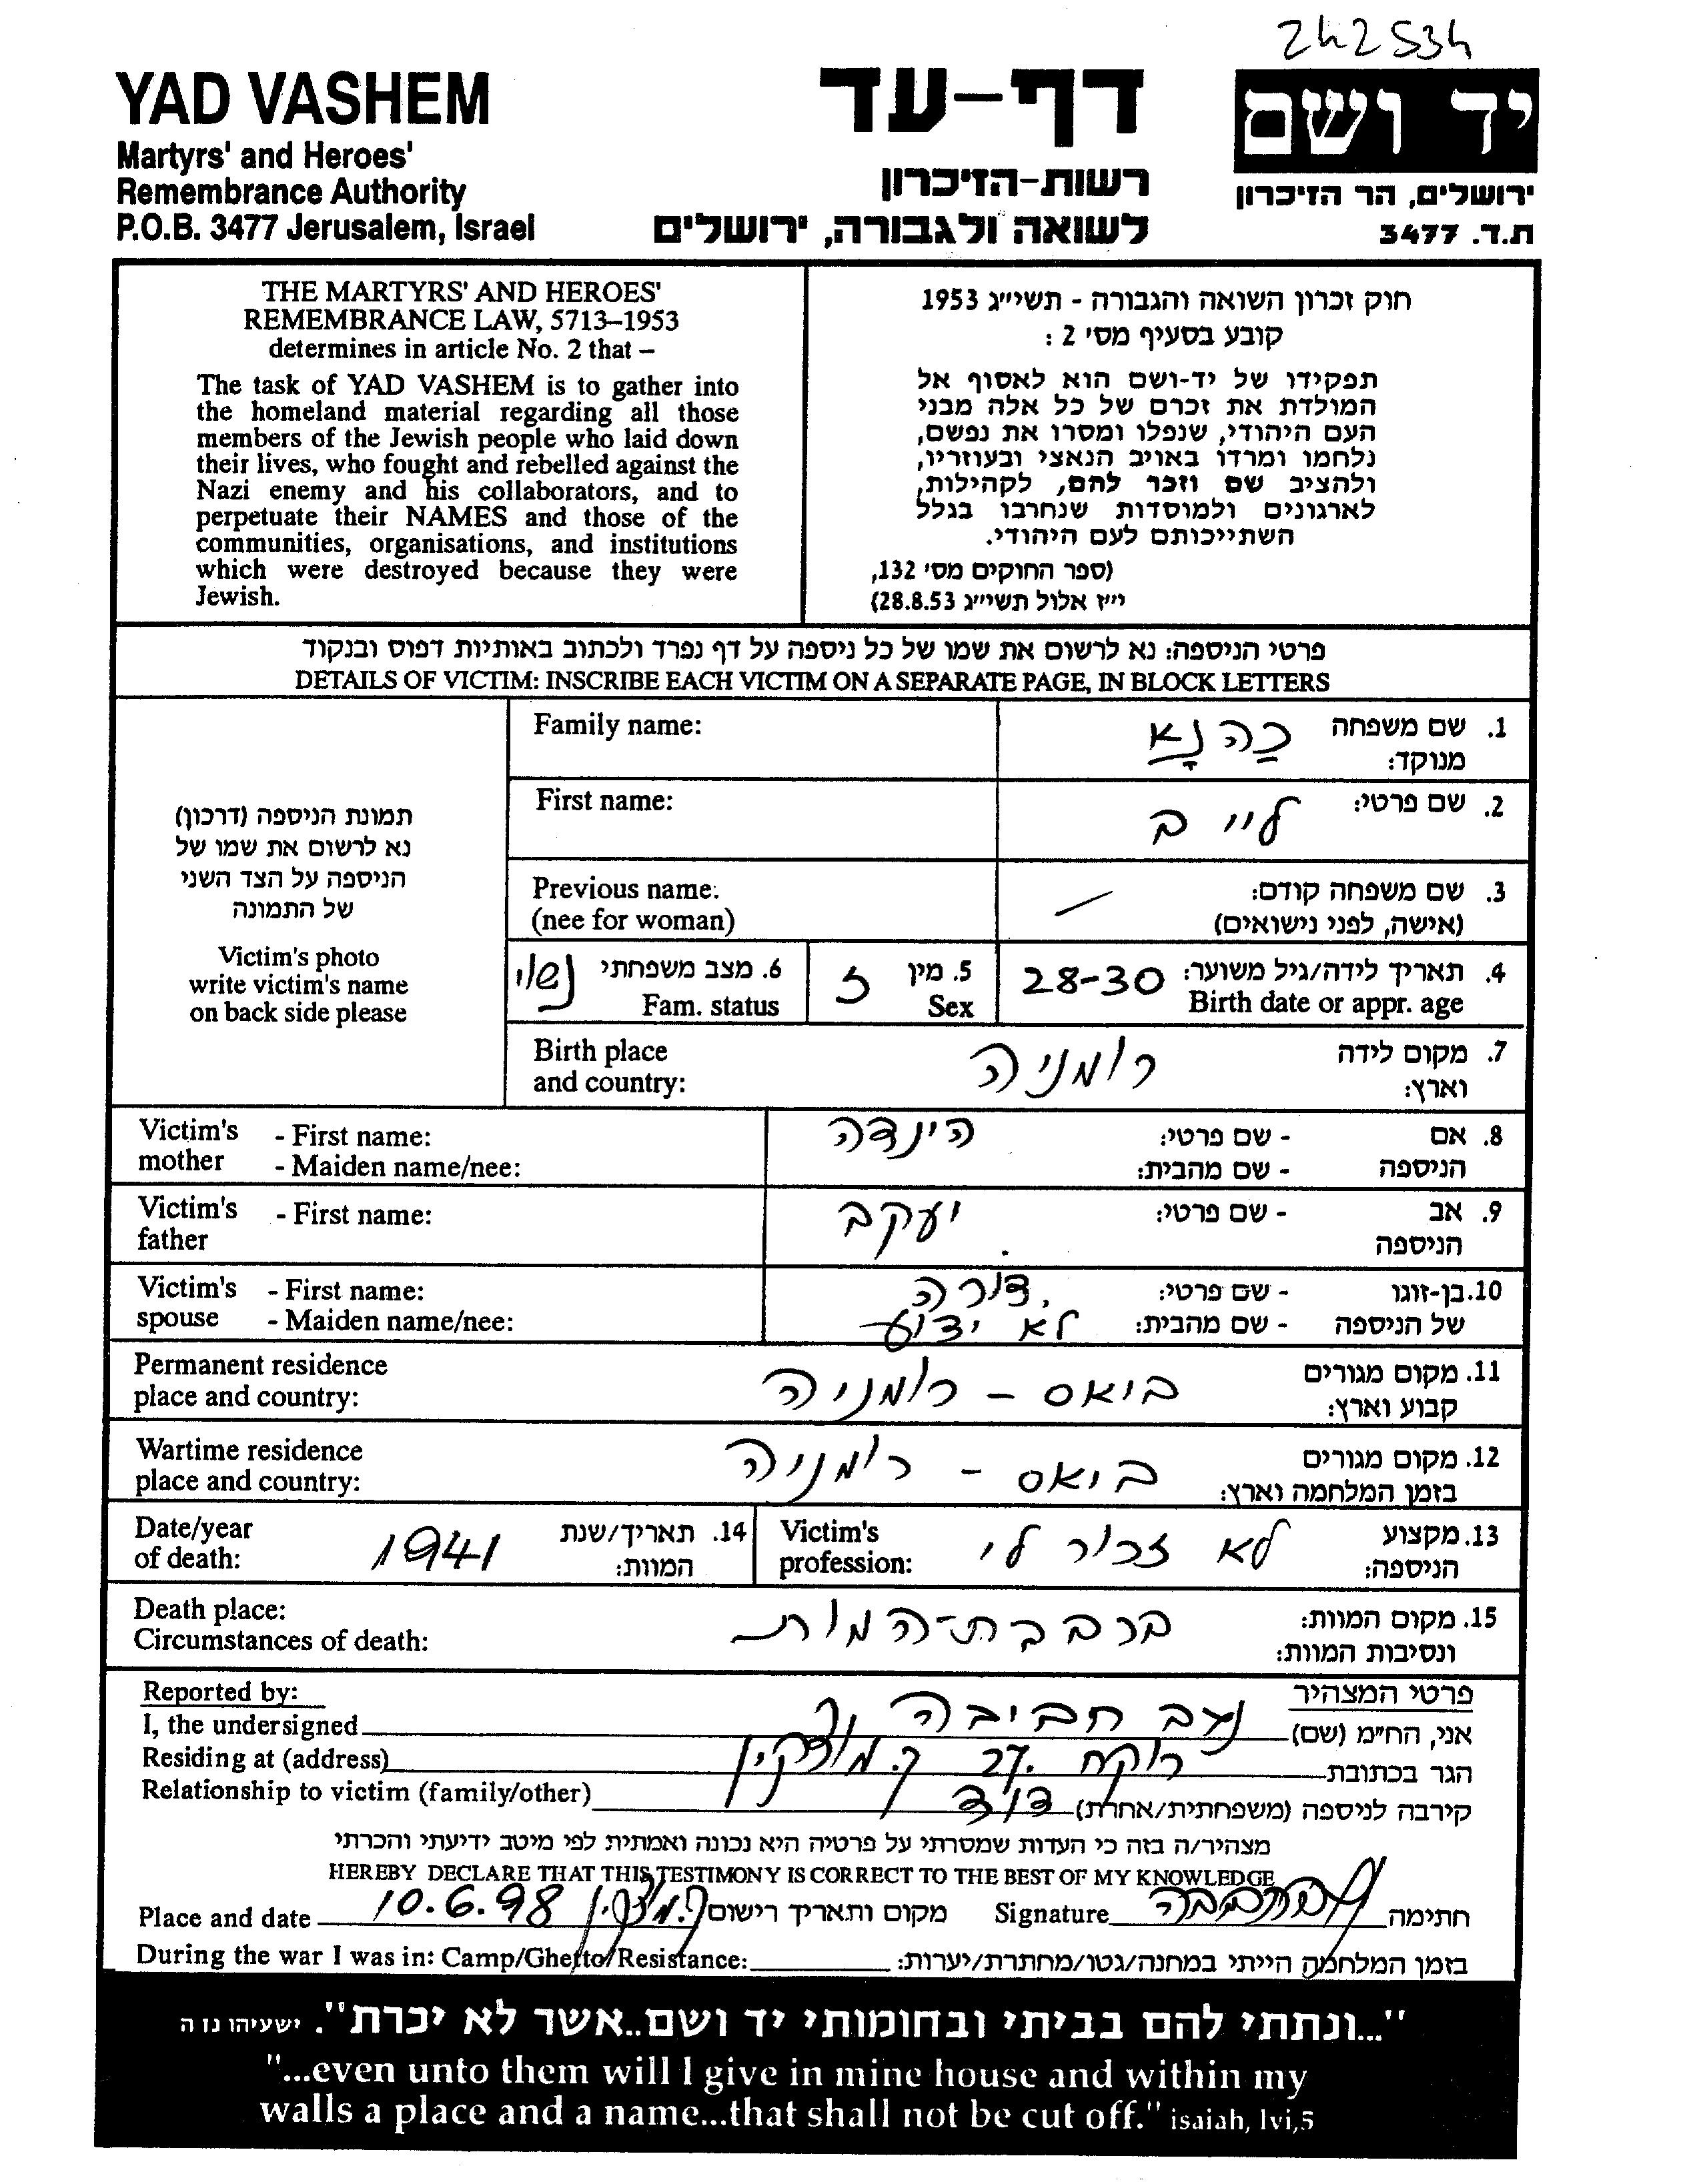 242534
YAD VASHEM
Martyrs' and Heroes'
Remembrance Authority
P.O.B. 3477 Jerusalem, Israel
דף-עד
רשות-הזיכרון
לשואה ולגבורה, ירושלים
יד ושם
ירושלים, הר הזיכרון
ת.ד. 3477
THE MARTYRS' AND HEROES'
REMEMBRANCE LAW, 5713–1953
determines in article No. 2 that –
The task of YAD VASHEM is to gather into
the homeland material regarding all those
members of the Jewish people who laid down
their lives, who fought and rebelled against the
Nazi enemy and his collaborators, and to
perpetuate their NAMES and those of the
communities, organisations, and institutions
which were destroyed because they were
Jewish.
חוק זכרון השואה והגבורה - תשי״ג 1953
קובע בסעיף מס׳ 2 :
תפקידו של יד-ושם הוא לאסוף אל
המולדת את זכרם של כל אלה מבני
העם היהודי, שנפלו ומסרו את נפשם,
נלחמו ומרדו באויב הנאצי ובעוזריו,
ולהציב שם וזכר להם, לקהילות,
לארגונים ולמוסדות שנחרבו בגלל
השתייכותם לעם היהודי.
(ספר החוקים מס׳ 132,
י״ז אלול תשי״ג 28.8.53)
פרטי הניספה: נא לרשום את שמו של כל ניספה על דף נפרד ולכתוב באותיות דפוס ובנקוד
DETAILS OF VICTIM: INSCRIBE EACH VICTIM ON A SEPARATE PAGE, IN BLOCK LETTERS
תמונת הניספה (דרכון)
נא לרשום את שמו של
הניספה על הצד השני
של התמונה
Victim's photo
write victim's name
on back side please
1. שם משפחה מנוקד: כַּהֲנָא Family name:
2. שם פרטי: לייב First name:
3. שם משפחה קודם: (אישה, לפני נישואים) — Previous name: (nee for woman)
4. תאריך לידה/גיל משוער: 28-30 Birth date or appr. age
5. מין ז Sex
6. מצב משפחתי נשוי Fam. status
7. מקום לידה וארץ: רומניה Birth place and country:
8. אם הניספה - שם פרטי: הינדה - שם מהבית: Victim's mother - First name: - Maiden name/nee:
9. אב הניספה - שם פרטי: יעקב Victim's father - First name:
10. בן-זוגו של הניספה - שם פרטי: דורה - שם מהבית: לא ידוע Victim's spouse - First name: - Maiden name/nee:
11. מקום מגורים קבוע וארץ: ביאס - רומניה Permanent residence place and country:
12. מקום מגורים בזמן המלחמה וארץ: ביאס - רומניה Wartime residence place and country:
13. מקצוע הניספה: לא זכור לי Victim's profession:
14. תאריך/שנת המוות: 1941 Date/year of death:
15. מקום המוות: ונסיבות המוות: ברכבת-המות Death place: Circumstances of death:
פרטי המצהיר Reported by:
אני, הח״מ (שם) חביבה I, the undersigned
הגר בכתובת רוקח 27 ק. מוצקין Residing at (address)
קירבה לניספה (משפחתית/אחרת) דוד Relationship to victim (family/other)
מצהיר/ה בזה כי העדות שמסרתי על פרטיה היא נכונה ואמתית לפי מיטב ידיעתי והכרתי
HEREBY DECLARE THAT THIS TESTIMONY IS CORRECT TO THE BEST OF MY KNOWLEDGE
חתימה Signature מקום ותאריך רישום ק. מוצקין 10.6.98 Place and date
בזמן המלחמה הייתי במחנה/גטו/מחתרת/יערות: During the war I was in: Camp/Ghetto/Resistance:
"...ונתתי להם בביתי ובחומותי יד ושם..אשר לא יכרת". ישעיהו נו ה
"...even unto them will I give in mine house and within my
walls a place and a name...that shall not be cut off." isaiah, lvi,5